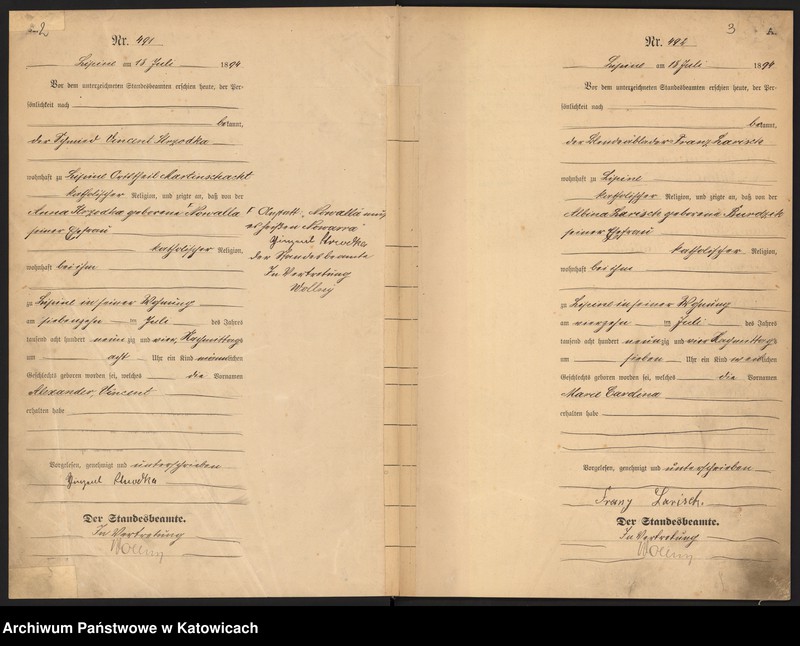 2
Nr. 491
Lipine am 18 Juli 1894
Vor dem unterzeichneten Standesbeamten erschien heute, der Per-
sönlichkeit nach
bekannt,
der Schmied Vincent
wohnhaft zu Lipine Ortstheil Martinschacht
katholischer Religion, und zeigte an, daß von der
Anna geborene Nowalla
seiner Ehefrau
katholischer Religion,
wohnhaft bei ihm
zu Lipine in seiner Wohnung
am siebenzehn ten Juli des Jahres
tausend acht hundert neunzig und vier, Nachmittags
um acht Uhr ein Kind männlichen
Geschlechts geboren worden sei, welches die Vornamen
Alexander, Vincent
erhalten habe
Vorgelesen, genehmigt und unterschrieben
Der Standesbeamte.
In Vertretung
Wollny
Anstatt "Nowalla" muß
es heißen "Nowarra"
der Standesbeamte
In Vertretung
Wollny
3
A.
Nr. 492
Lipine am 18 Juli 1894
Vor dem unterzeichneten Standesbeamten erschien heute, der Per-
sönlichkeit nach
bekannt,
der Franz Larisch
wohnhaft zu Lipine
katholischer Religion, und zeigte an, daß von der
Albina Larisch geborene
seiner Ehefrau
katholischer Religion,
wohnhaft bei ihm
zu Lipine in seiner Wohnung
am vierzehn ten Juli des Jahres
tausend acht hundert neunzig und vier Nachmittags
um sieben Uhr ein Kind weiblichen
Geschlechts geboren worden sei, welches die Vornamen
erhalten habe
Vorgelesen, genehmigt und unterschrieben
Franz Larisch.
Der Standesbeamte.
In Vertretung
Wollny
Archiwum Państwowe w Katowicach